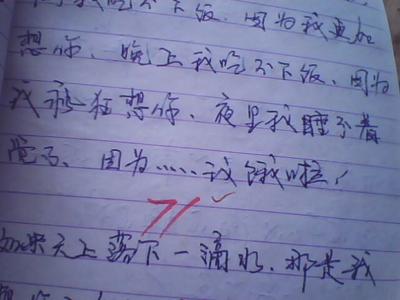 我吃不下饭、因为我更加
想你、晚上我吃不下饭、因为
我狂想你、夜里我睡不着
觉、因为……我饿啦!
如果天上下一滴水、那是我